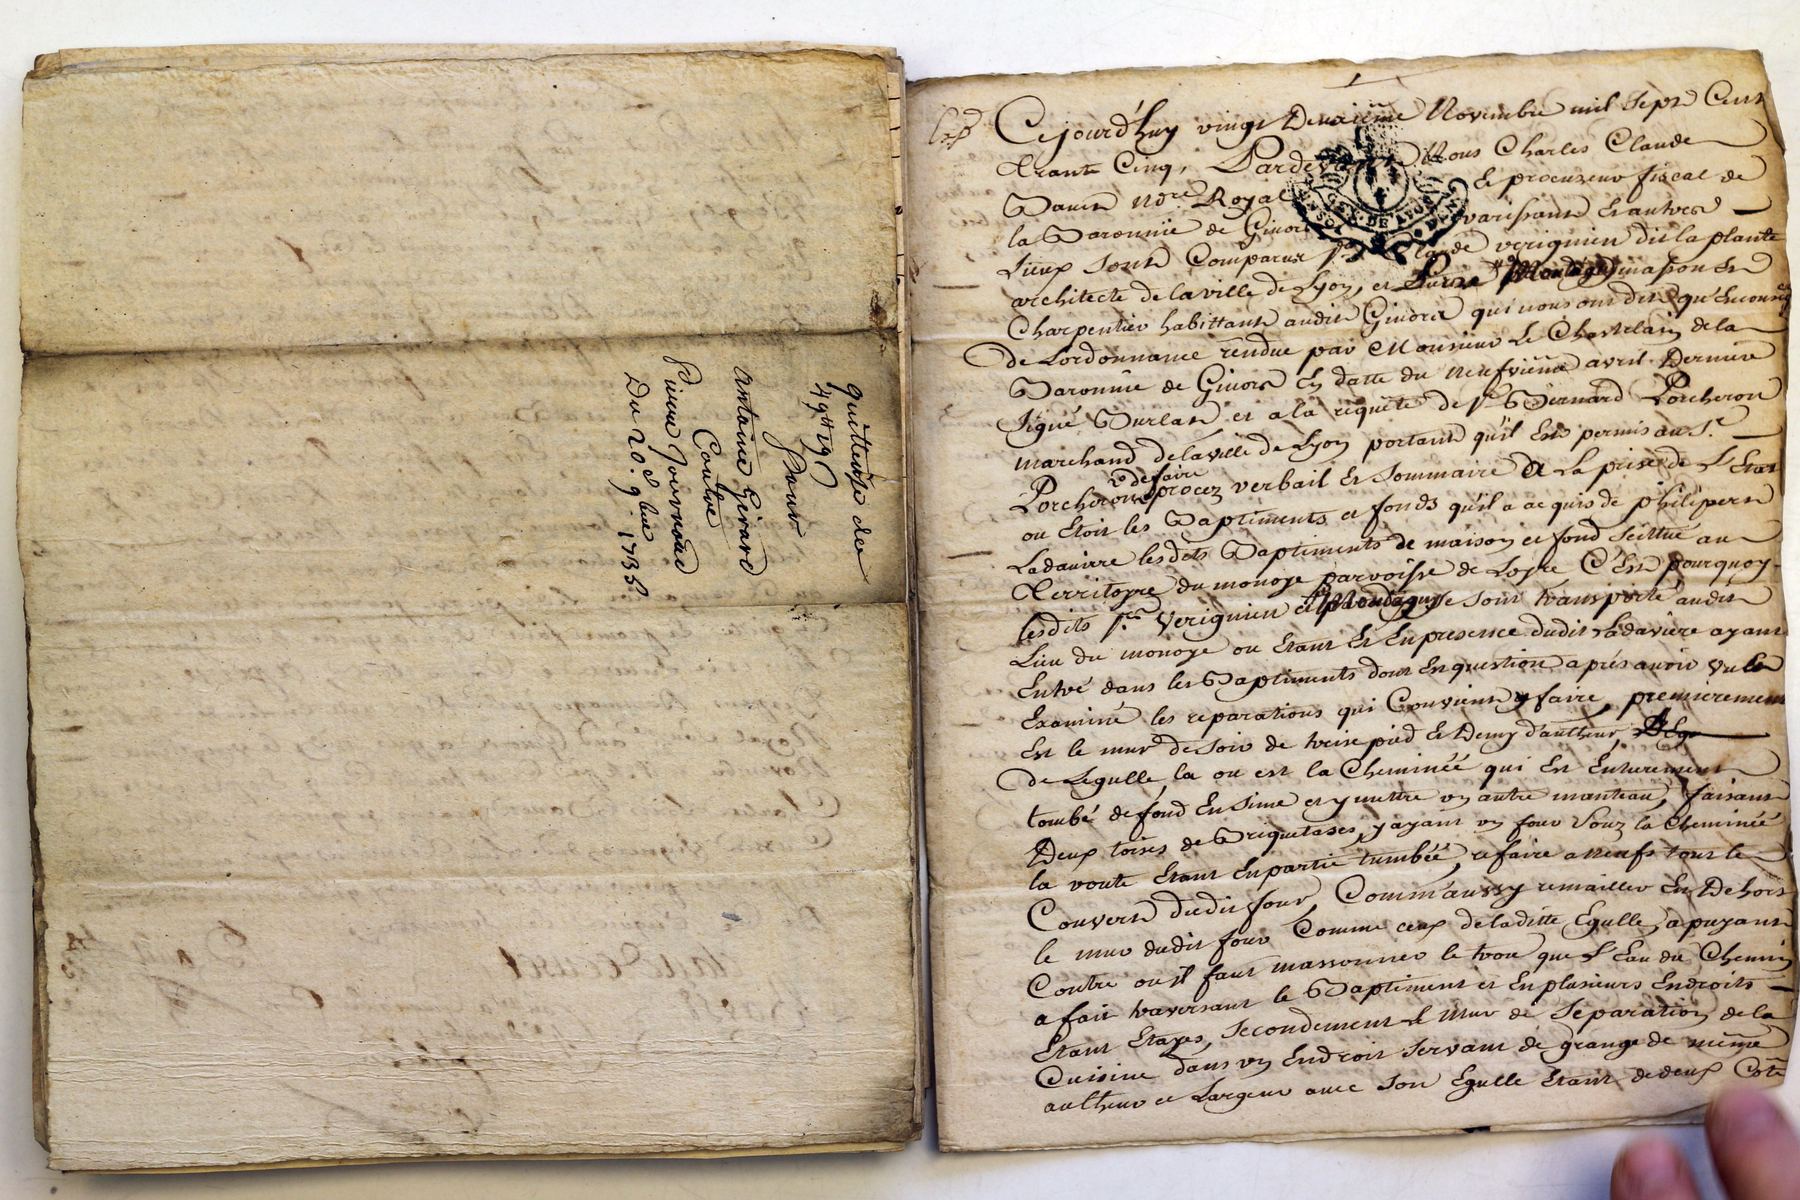 quittence de
49ˡᵗ 19ˢ
Pour
Antoine Girard
Contre
Pierre Jouvrou
Du 20. 9bre 1735
Exp
Cejourd'huy vingt Deuxiême Novembre mil sept Cent
Trante Cinq, Pardevant Nous Charles Claude
Bauet Nore Royal & procureur fiscal de
la Baronnie de Givors varissant & autres
Lieux sont Comparus Sr Claude verignien dit la plante
architecte de la ville de Lyon, et Pierre Montagny masson et
Charpentier habittant audit Givors qui nous ont dit qu'en consé
de Lordonnance rendue par Monsieur Le Chastelain de la
Baronnie de Givors En datte du neufviême avril Dernier
signé Burlat et a la requête de Sr Bernard Porcheron
marchand de la ville de Lyon portant qu'il Est permis au Sr
Porcheron de faire procez verbail et sommaire de la prise de L'Etat
ou Etoit les Baptiments et fonds qu'il a acquis de philipert
Ladavirre lesdits Baptiments de maison et fond scittué au
Territoyre du monoye parroisse de Loyre C'est pourquoy
lesdits Sr verignien et Montagny se sont transporté audit
Lieu du monoye ou Etant et En presence dudit Ladaviere ayant
Entré dans les Baptiments dont En question aprés avoir vu &
Examiné les reparations qui Convient y faire, premierement
Est le mur de soir de treise pied et Demy d'autheur,
de Legulle, la ou est la Cheminéé qui Est Entierement
tombé de fond En sime et y mettre un autre manteau, faisant
Deux toises de Briquetages, y ayant un four souz la Cheminéé
la voute Etant En partie tumbéé, refaire a neufs tout le
Couvert dudit four, Comm'aussy remailler En Dehors
le mur dudit four Comme ceux de laditte Egulle, apuyant
Contre ou il faut massonner le trou que L'Eau du Chemin
a fait traversant le Baptiment et En plusieurs Endroits
Etant Etayes, secondement Le Mur de Separation de la
Cuisine dans un Endroit servant de grange de même
autheur et Largeur avec son Egulle Etant de deux Côté